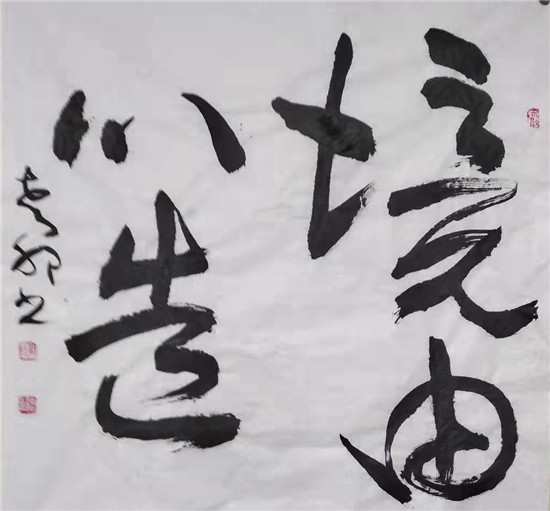 境由
心造
书